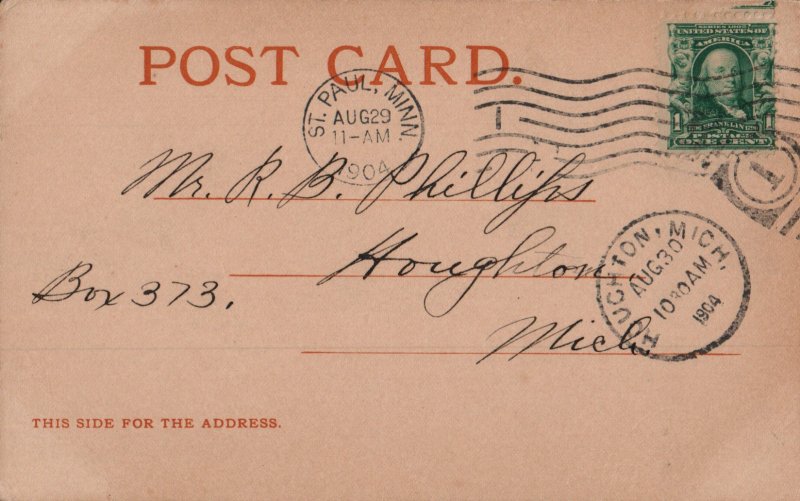 SERIES 1902
UNITED STATES OF
AMERICA
1 FRANKLIN 1
POSTAGE
ONE CENT
POST CARD.
ST. PAUL, MINN.
AUG 29
11-AM
1904
1
1
Mr. R. B. Phillips
Houghton
Box 373.
Mich
HOUGHTON, MICH.
AUG 30
10 30 AM
1904
THIS SIDE FOR THE ADDRESS.